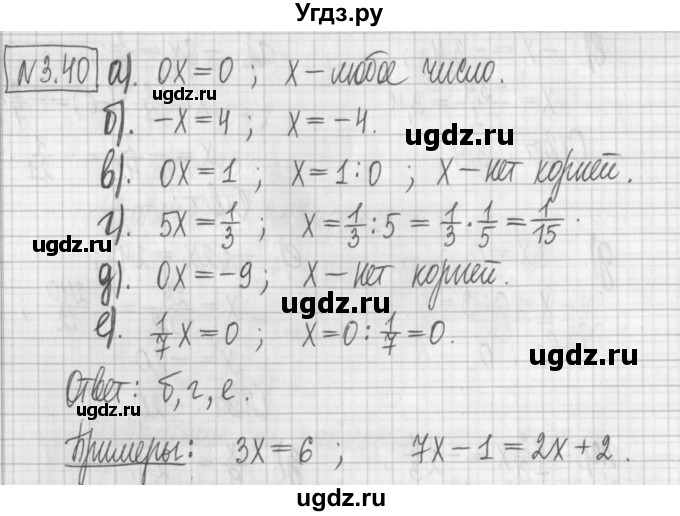 Угдз.ру
№3.40 а). 0x=0 ; x – любое число.
ugdz.ru
б). -x=4 ; x=-4.
ugdz.ru
в). 0x=1 ; x=1:0 ; x – нет корней.
ugdz.ru
г). 5x=1/3 ; x=1/3:5=1/3·1/5=1/15.
д). 0x=-9 ; x – нет корней.
ugdz.ru
е). 1/7x=0 ; x=0:1/7=0.
ugdz.ru
Ответ: б, г, е.
ugdz.ru
ugdz.ru
Примеры: 3x=6 ; 7x-1=2x+2.
ugdz.ru
ugdz.ru